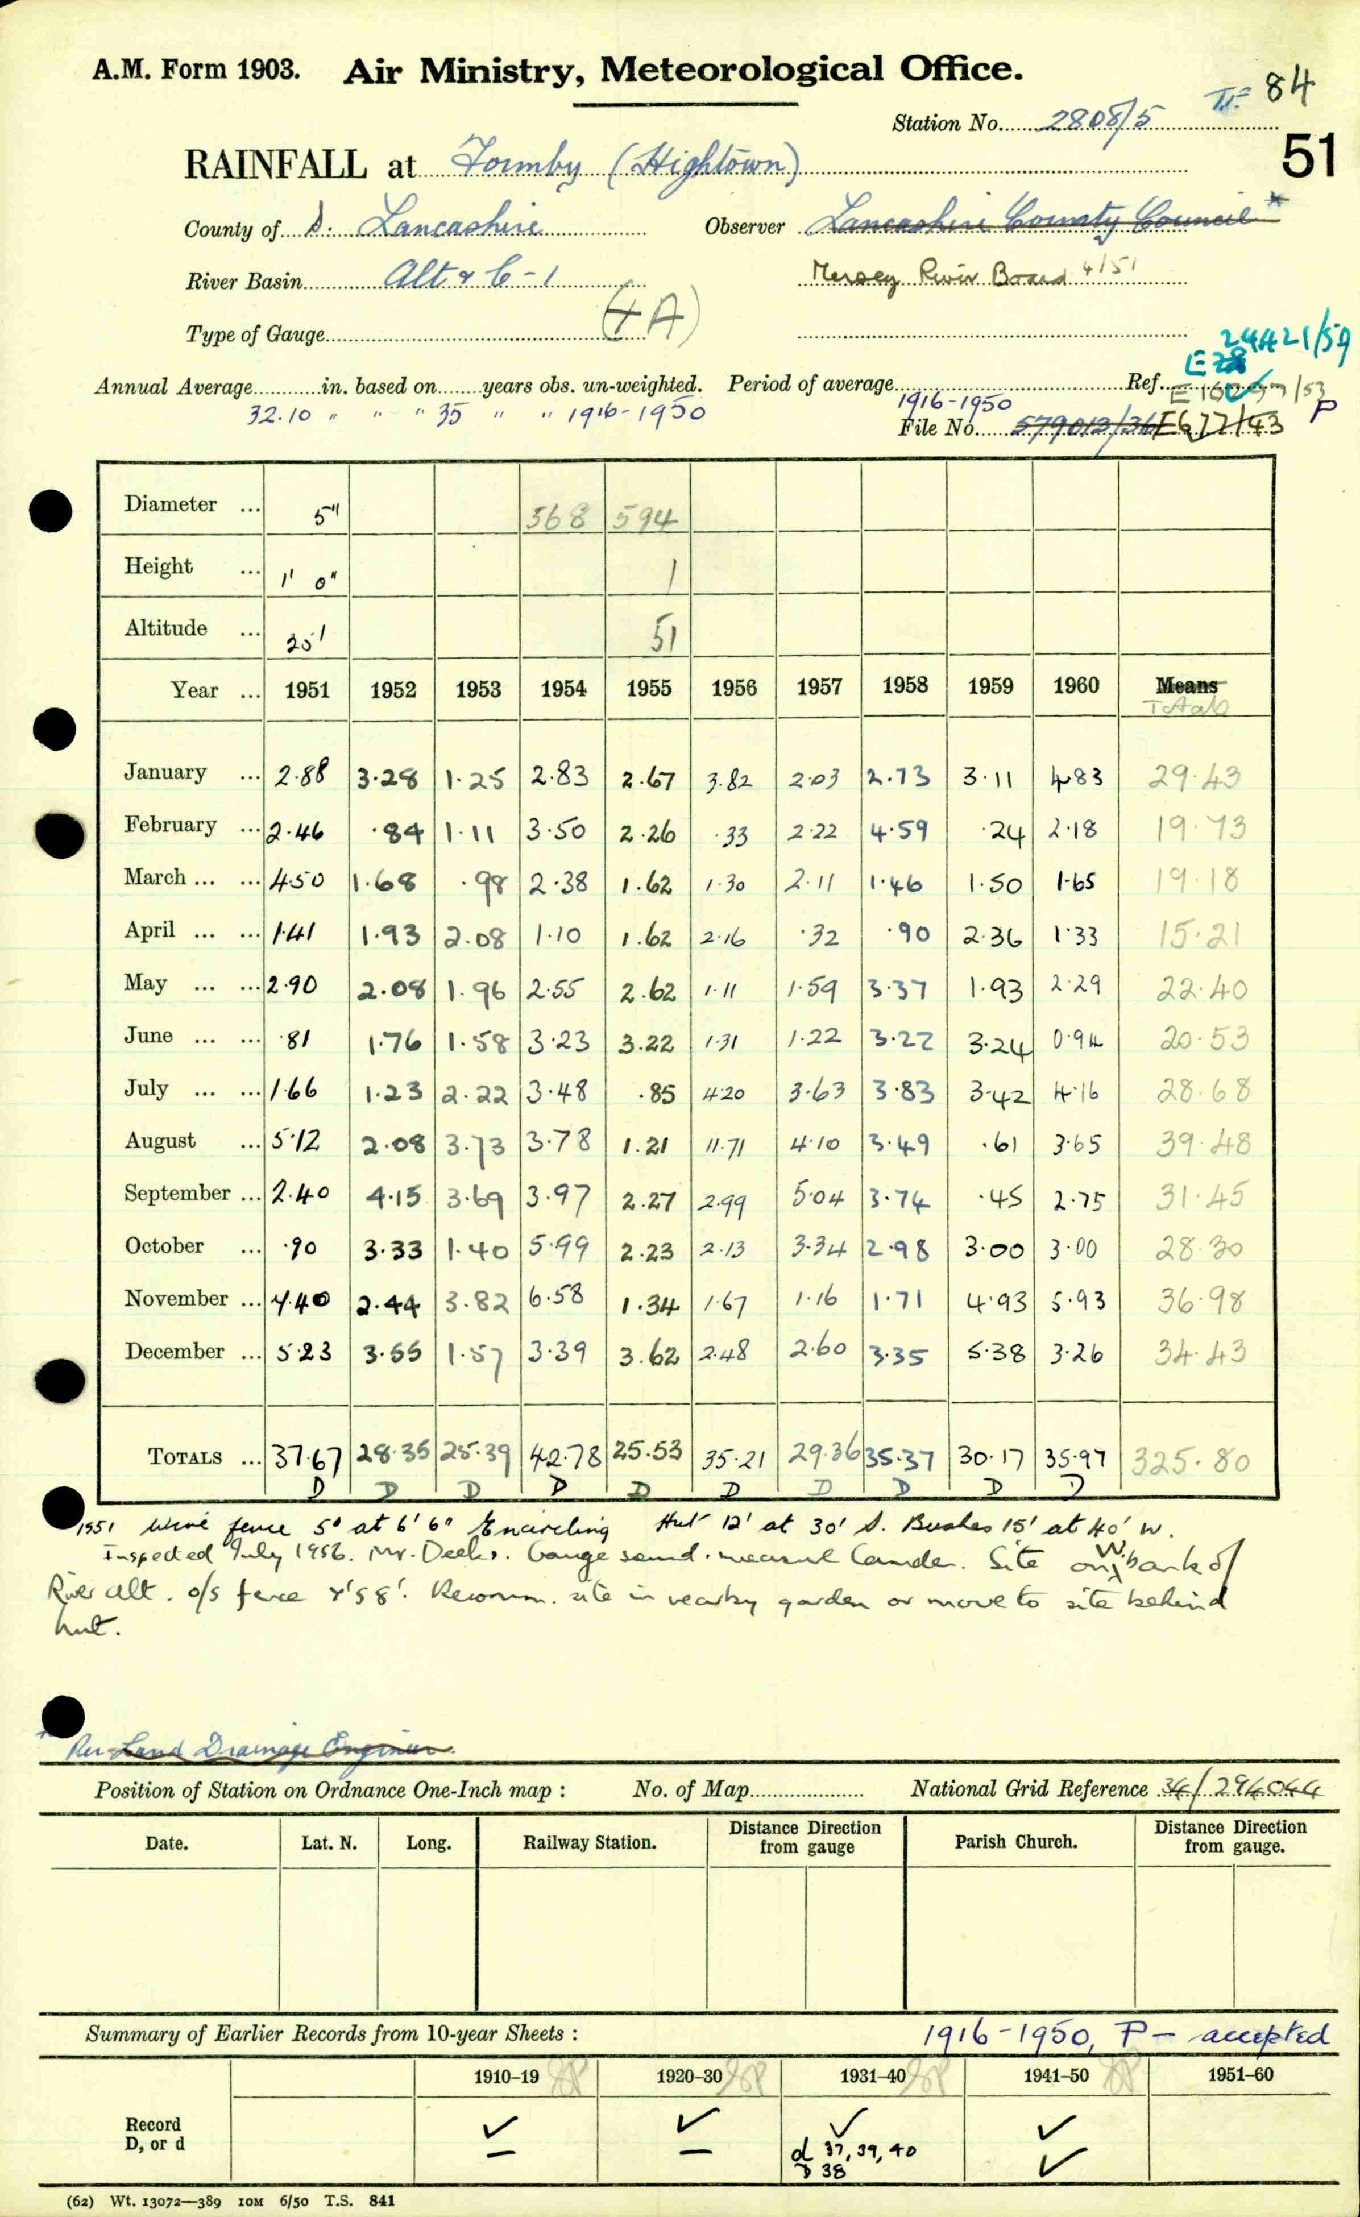 A.M. Form 1903. Air Ministry, Meteorological Office.
84
Station No. 2808/5
51
RAINFALL at Formby (Hightown)
County of S. Lancashire Observer Lancashire County Council *
River Basin Alt & C-1 Mersey River Board 4/51
Type of Gauge (4A)
24421/59
Annual Average in. based on years obs. un-weighted. Period of average 1916-1950 Ref.
32.10 " " " 35 " " 1916-1950
File No. 579013/36 E677/43 P
Diameter ... 5" 368 594
Height ... 1' 0" 1
Altitude ... 51
Year ... 1951 1952 1953 1954 1955 1956 1957 1958 1959 1960 Means Totals
January ... 2.88 3.28 1.25 2.83 2.67 3.82 2.03 2.73 3.11 4.83 29.43
February ... 2.46 .84 1.11 3.50 2.26 .33 2.22 4.59 .24 2.18 19.73
March ... ... 4.50 1.68 .98 2.38 1.62 1.30 2.11 1.46 1.50 1.65 19.18
April ... ... 1.41 1.93 2.08 1.10 1.62 2.16 .32 .90 2.36 1.33 15.21
May ... ... 2.90 2.08 1.96 2.55 2.62 1.11 1.59 3.37 1.93 2.29 22.40
June ... ... .81 1.76 1.58 3.23 3.22 1.31 1.22 3.22 3.24 0.94 20.53
July ... ... 1.66 1.23 2.22 3.48 .85 4.20 3.63 3.83 3.42 4.16 28.68
August ... 5.12 2.08 3.73 3.78 1.21 11.71 4.10 3.49 .61 3.65 39.48
September ... 2.40 4.15 3.69 3.97 2.27 2.99 5.04 3.74 .45 2.75 31.45
October ... .90 3.33 1.40 5.99 2.23 2.13 3.34 2.98 3.00 3.00 28.30
November ... 7.40 2.44 3.82 6.58 1.34 1.67 1.16 1.71 4.93 5.93 36.98
December ... 5.23 3.55 1.57 3.39 3.62 2.48 2.60 3.35 5.38 3.26 34.43
TOTALS ... 37.67 28.35 25.39 42.78 25.53 35.21 29.36 35.37 30.17 35.97 325.80
D D D D D D D D D D
1951 Wire fence 5' at 6'6" Encircling Hut 12' at 30' S. Bushes 15' at 40' W.
Inspected July 1956. Mr. Deeks. Gauge sound. measure Camden. Site on W. bank of
River Alt. o/s fence 4'58'. Recomm. site in nearby garden or move to site behind
hut.
* Per Land Drainage Engineer.
Position of Station on Ordnance One-Inch map : No. of Map National Grid Reference 34/294044
Date. Lat. N. Long. Railway Station. Distance from Direction gauge Parish Church. Distance from Direction gauge.
Summary of Earlier Records from 10-year Sheets : 1916-1950, P - accepted
1910–19 1920–30 1931–40 1941–50 1951–60
Record ✓ ✓ ✓ ✓
D, or d – – d 37, 39, 40 ✓
D 38
(62) Wt. 13072—389 10M 6/50 T.S. 841